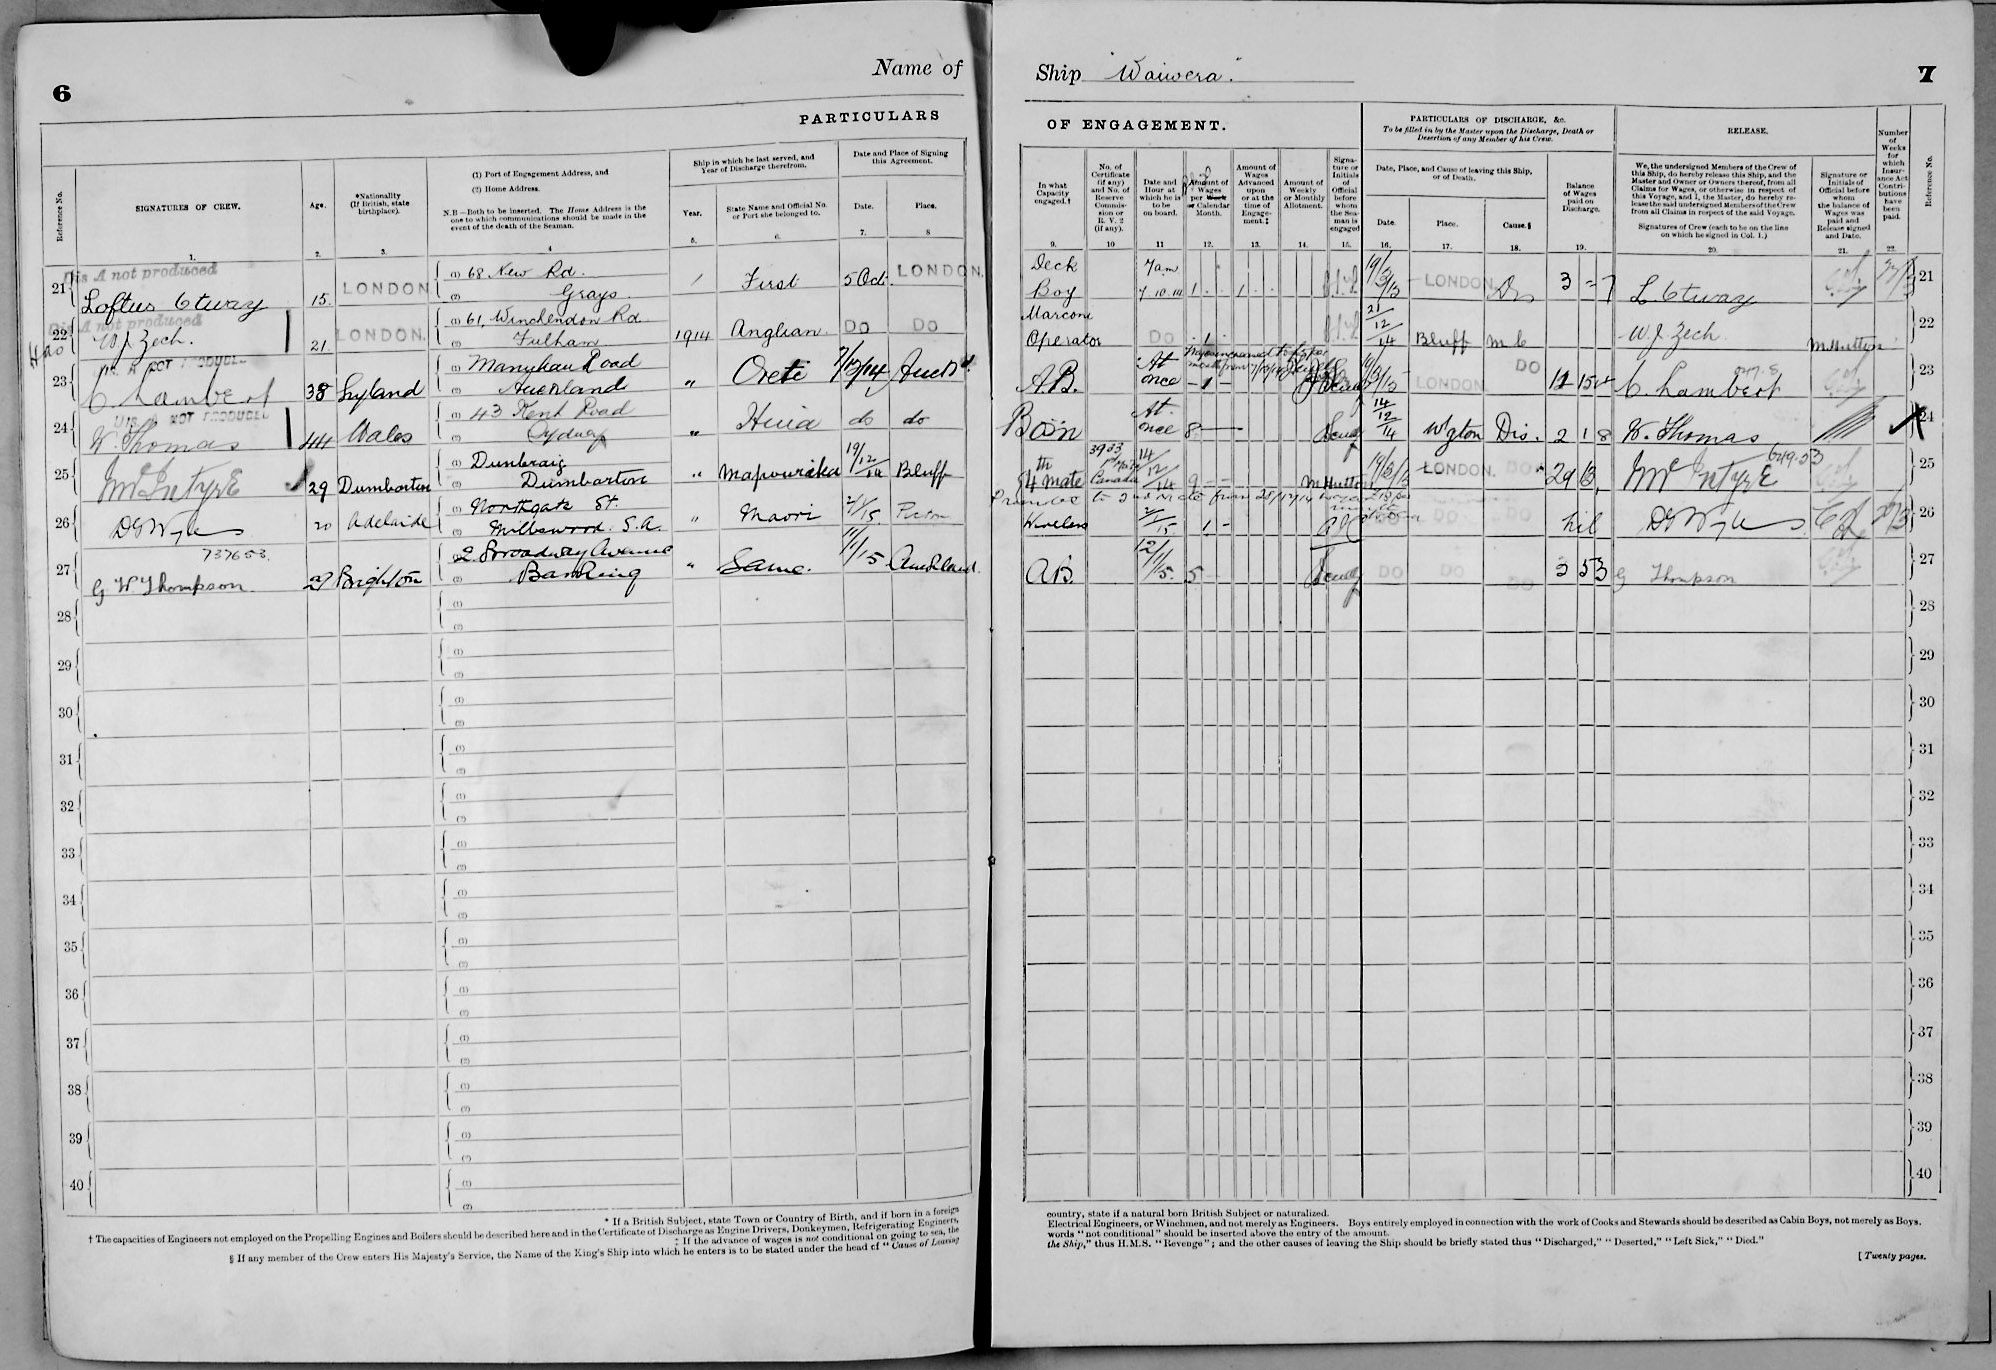 6
Name of
PARTICULARS
Reference No.
SIGNATURES OF CREW.
Age.
*Nationality
(If British, state
birthplace).
(1) Port of Engagement Address, and
(2) Home Address.
N.B—Both to be inserted. The Home Address is the
one to which communications should be made in the
event of the death of the Seaman.
Ship in which he last served, and
Year of Discharge therefrom.
Year.
State Name and Official No.
or Port she belonged to.
Date and Place of Signing
this Agreement.
Date.
Place.
1. 2. 3. 4 5. 6. 7. 8
Dis A not produced
21 Loftus Otway 15. LONDON (1) 68 New Rd. / First 5 Oct. LONDON.
(2) Grays
Dis A not produced
22 W J Zech. 21. LONDON. (1) 61, Winchendon Rd 1914 Anglian. DO DO
(2) Fulham
DIS. A NOT PRODUCED
23 C. Lambert 38 (1) Manukau Road " Orete 7/12/14 Auckd.
(2) Auckland
DIS. A NOT PRODUCED
24 W. Thomas 44 Wales (1) 43 Kent Road " Huia do do
(2) Sydney
25 J McIntyre 29 Dumbarton (1) Dunbraig " Mapourika 19/12/14 Bluff
(2) Dumbarton
26 20 Adelaide (1) Northgate St. " Maori 2/1/15
(2) Millswood. S.A.
737653.
27 G W Thompson 27 Brighton 2. Broadway Avenue " Same. 11/1/15 Auckland.
(2) Barking
28 (1)
(2)
29 (1)
(2)
30 (1)
(2)
31 (1)
(2)
32 (1)
(2)
33 (1)
(2)
34 (1)
(2)
35 (1)
(2)
36 (1)
(2)
37 (1)
(2)
38 (1)
(2)
39 (1)
(2)
40 (1)
(2)
* If a British Subject, state Town or Country of Birth, and if born in a foreign
† The capacities of Engineers not employed on the Propelling Engines and Boilers should be described here and in the Certificate of Discharge as Engine Drivers, Donkeymen, Refrigerating Engineers,
‡ If the advance of wages is not conditional on going to sea, the
§ If any member of the Crew enters His Majesty's Service, the Name of the King's Ship into which he enters is to be stated under the head of "Cause of Leaving
Ship "Waiwera."
7
OF ENGAGEMENT.
PARTICULARS OF DISCHARGE, &c.
To be filled in by the Master upon the Discharge, Death or
Desertion of any Member of his Crew.
RELEASE.
In what
Capacity
engaged.†
No. of
Certificate
(if any)
and No. of
Reserve
Commis-
sion or
R. V. 2
(if any).
Date and
Hour at
which he is
to be
on board.
Amount of
Wages
per Week
or Calendar
Month.
Amount of
Wages
Advanced
upon
or at the
time of
Engage-
ment.‡
Amount of
Weekly
or Monthly
Allotment.
Signa-
ture or
Initials
of
Official
before
whom
the Sea-
man is
engaged
Date, Place, and Cause of leaving this Ship,
or of Death.
Date.
Place.
Cause.§
Balance
of Wages
paid on
Discharge.
We, the undersigned Members of the Crew of
this Ship, do hereby release this Ship, and the
Master and Owner or Owners thereof, from all
Claims for Wages, or otherwise in respect of
this Voyage, and I, the Master, do hereby re-
lease the said undersigned Members of the Crew
from all Claims in respect of the said Voyage.
Signatures of Crew (each to be on the line
on which he signed in Col. 1.)
Signature or
Initials of
Official before
whom
the balance of
Wages was
paid and
Release signed
and Date.
Number
of
Weeks
for
which
Insur-
ance Act
Contri-
butions
have
been
paid.
Reference No.
9. 10 11 12. 13. 14. 15. 16. 17. 18. 19. 20. 21. 22.
Deck 7am
Boy 7.10.14 1 1 19/3/15 LONDON Dis 3 - 7 L Otway 21
Marconi
Operator DO 1 21/12/14 Bluff m c W. J. Zech M Hutton 22
A.B. At once 1 19/3/15 LONDON. DO C. Lambert 23
Bosn At once 8 14/12/14 Wgton Dis. 2 1 8 W. Thomas 24
4th mate 3933 Canada 14/12/14 9 M Hutton 19/3/15 LONDON. DO 29 13 J McIntyre 649.53 25
to 2nd Mate from 28/12/14
Wireless 2/1/15 1 - DO DO DO Nil 26
A.B. 12/1/15. 5 DO DO DO G Thompson 27
28
29
30
31
32
33
34
35
36
37
38
39
40
country, state if a natural born British Subject or naturalized.
Electrical Engineers, or Winchmen, and not merely as Engineers. Boys entirely employed in connection with the work of Cooks and Stewards should be described as Cabin Boys, not merely as Boys.
words "not conditional" should be inserted above the entry of the amount.
the Ship," thus H.M.S. "Revenge"; and the other causes of leaving the Ship should be briefly stated thus "Discharged," "Deserted," "Left Sick," "Died."
[Twenty pages.